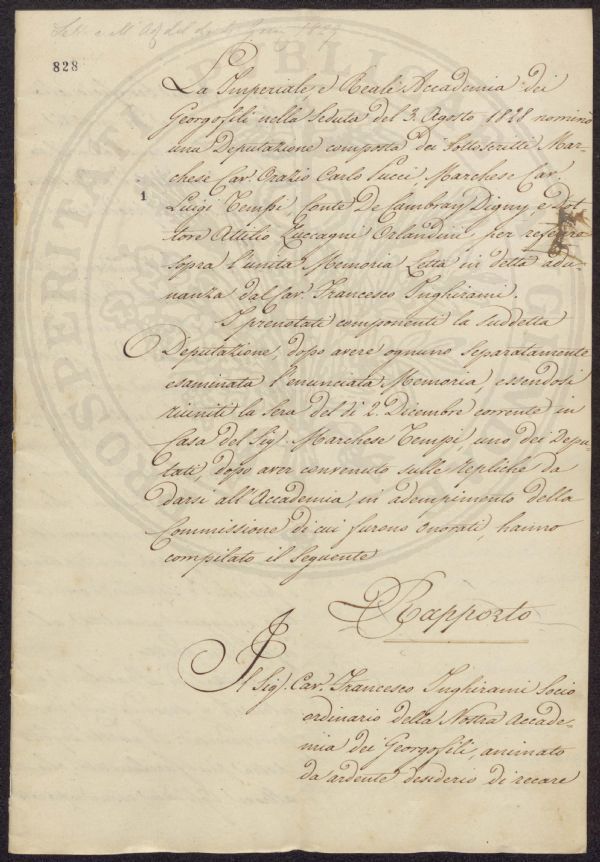 828
La Imperiale, e Reale Accademia dei
Georgofili nella Seduta del 3. Agosto 1828 nominò
una Deputazione composta dei sottoscritti Mar-
chese Cav. Orazio Carlo Pucci Marchese Cav.
1
Luigi Tempi, Conte De Cambray Digny, e Dot-
tore Attilio Zuccagni Orlandini per referire
sopra l'unita Memoria Letta in detta adu-
nanza dal Cav. Francesco Inghirami.
I prenotati componenti la suddetta
Deputazione, dopo avere ognuno separatamente
esaminata l'enunciata Memoria, essendosi
riuniti la sera del dì 2. Dicembre corrente in
Casa del Sig. Marchese Tempi, uno dei Depu-
tati, dopo aver convenuto sulle repliche da
darsi all'Accademia, in adempimento della
Commissione di cui furono onorati, hanno
compilato il seguente
Rapporto
Il Sig. Cav. Francesco Inghirami Socio
ordinario della Nostra Accade-
mia dei Georgofili, animato
da ardente desiderio di recare
PROSPERITATI PUBLICAE